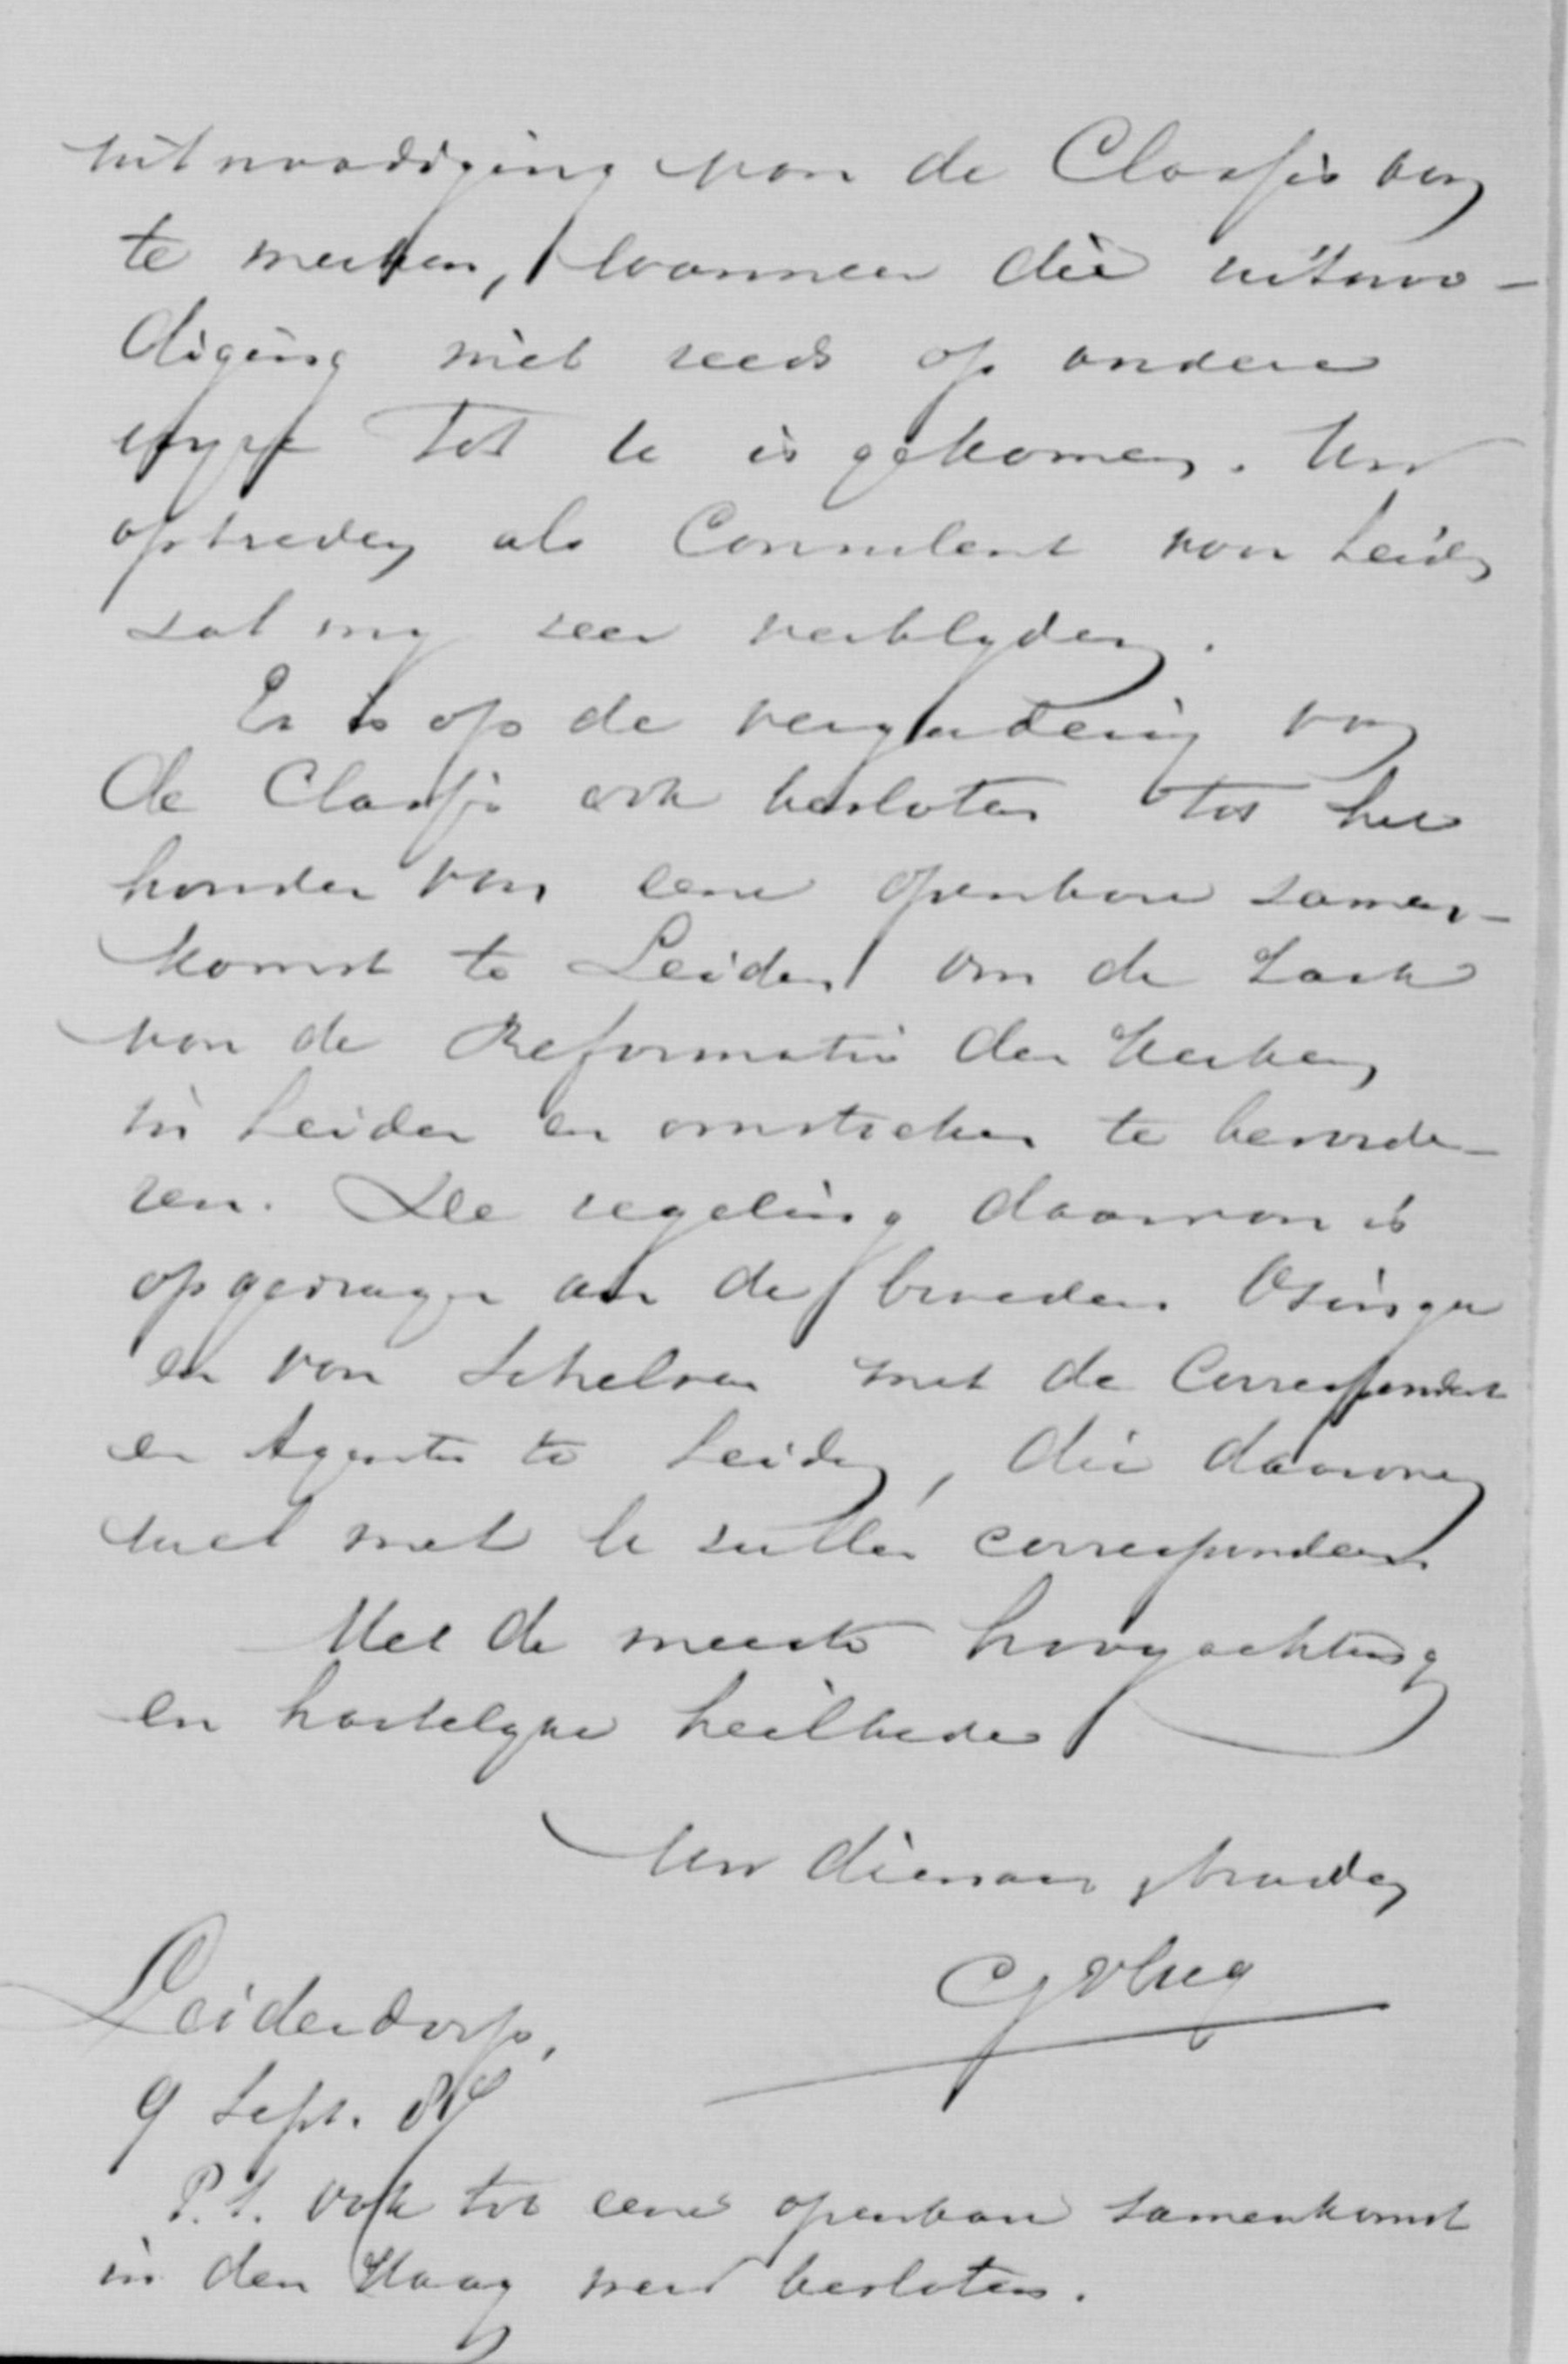 uitnoodiging van de Classis aan
te merken, wanneer die uitnoo-
diging niet reeds op andere
wyze tot U is gekomen. Uw
optreden als Consulent van Leiden
zal my zeer verblyden.
Er is op de vergadering van
de Classis ook besloten tot het
houden van eene openbare samen-
komst te Leiden om de zaak
van de Reformatie der Kerken
in Leiden en omstreken te bevorde-
ren. De regeling daarvan is
opgedragen aan de broeders Osinga
en van Schelven met de Correspondent
en Agent te Leiden, die daarover
wel met U zullen correspondeeren.
Met de meeste hoogachting
en hartelyke heilbede
Uw dienaar broeder
CJ Vlug
Leiderdorp,
9 Sept.
P.S. Ook tot eene openbare samenkomst
in den Haag werd besloten.